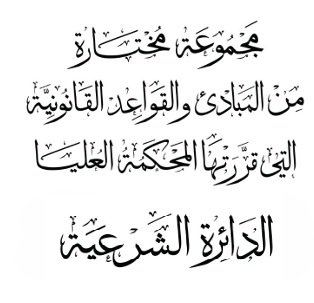 مَجْمُوعَة مُخْتَارَة
مِنَ المَبَادئ والقَوَاعِد القَانُونيَّة
التي قرَّرَتهَا المَحْكَمَة العُليَا
الدَائِرة الشَرعيَة